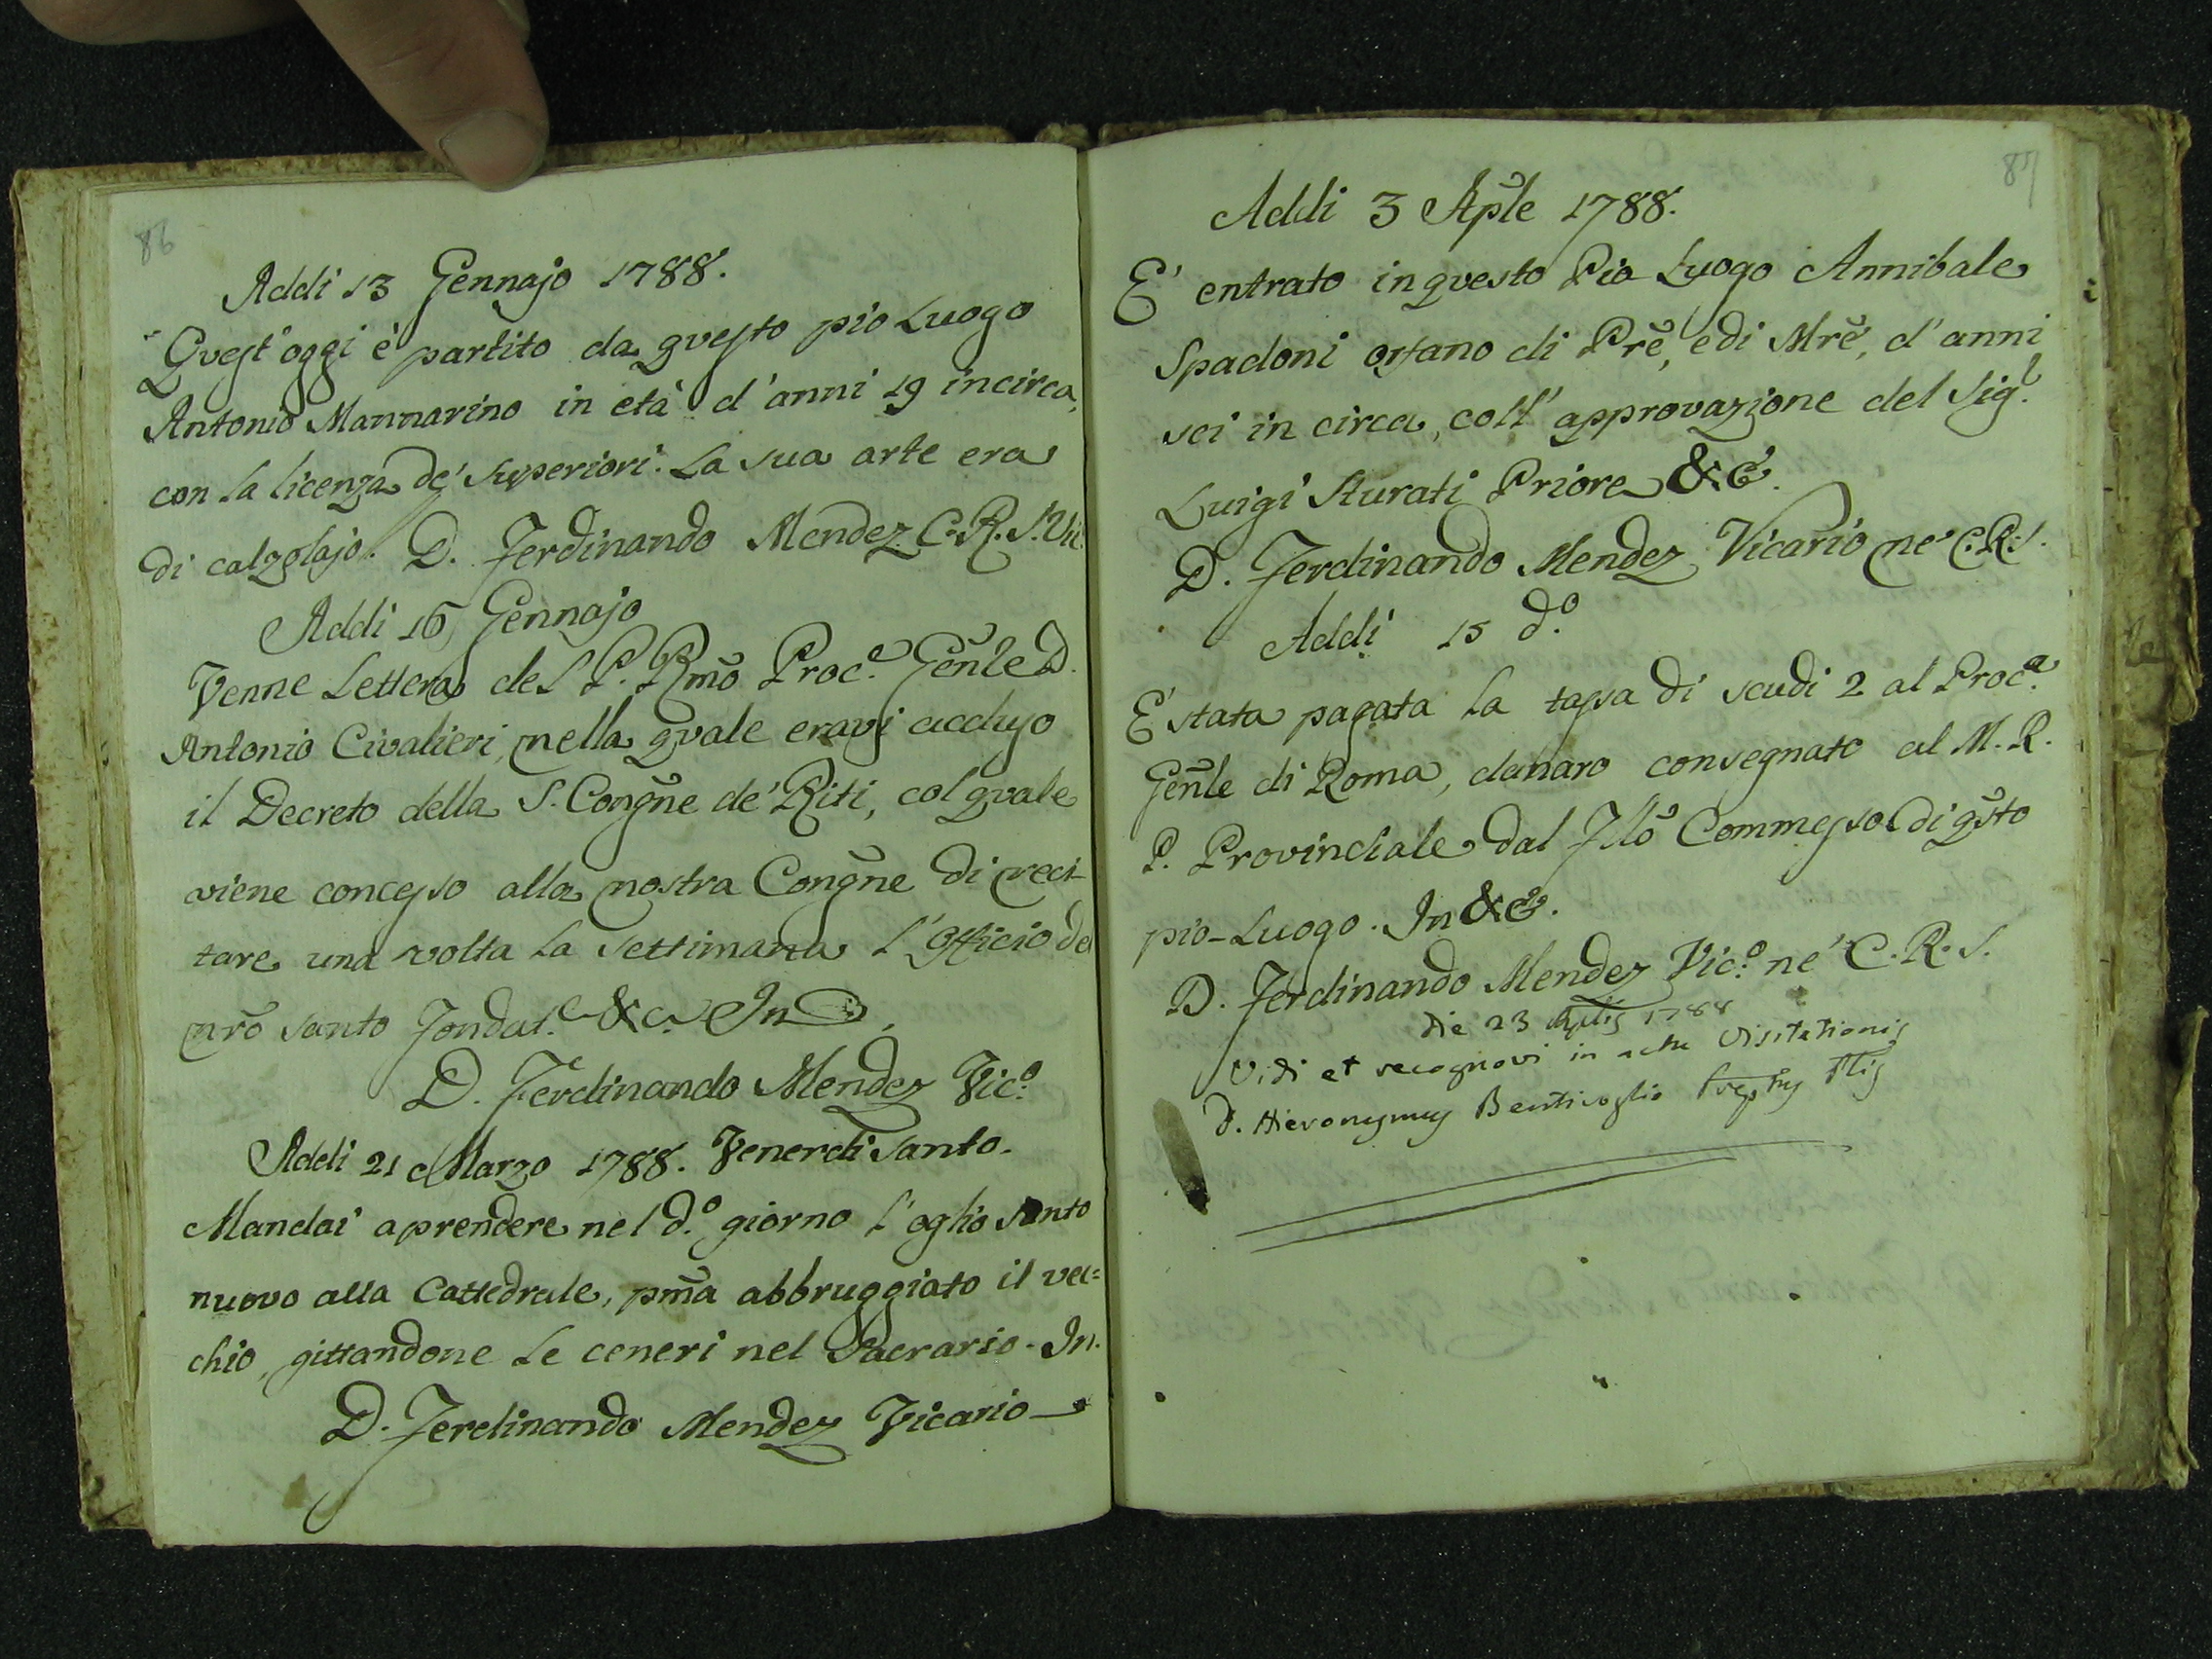 86
Addi 13 Gennajo 1788.
Quest'oggi è partito da questo pio Luogo
Antonio Mannarino in età d'anni 19 incirca,
con la licenza de' Superiori. La sua arte era
di calzolajo. D. Ferdinando Mendez C. R. S. Vic.
Addi 16 Gennajo
Venne Lettera del P. Rmo Proc.e Genle D.
Antonio Civalieri, nella quale eravi accluso
il Decreto della S. Congne de' Riti, col quale
viene concesso alla nostra Congne di reci-
tare una volta la settimana l'Officio del
nro santo Fondat.e &c. In
D. Ferdinando Mendez Vic.o
Addi 21 Marzo 1788. Venerdi Santo.
Mandai a prendere nel d.o giorno l'oglio santo
nuovo alla Cattedrale, pma abbruggiato il vec=
chio, gittandone le ceneri nel Sacrario. In.
D. Ferdinando Mendez Vicario
87
Addi 3 Aple 1788.
E' entrato in questo Pio Luogo Annibale
Spadoni orfano di Pre, e di Mre, d'anni
sei in circa, coll' approvazione del Sig.r
Luigi Sturati Priore &c.
D. Ferdinando Mendez Vicario ne' C. R. S.
Addi 15 d.o
E' stata pagata la tassa di scudi 2 al Proc.e
Genle di Roma, danaro consegnato al M. R.
P. Provinciale dal Illo Commesso di qsto
pio-Luogo. In &c.
D. Ferdinando Mendez Vic.o ne' C. R. S.
Die 23 Aplis 1788
Vidi et recognovi in actu Visitationis
D. Hieronymus Bentivoglio